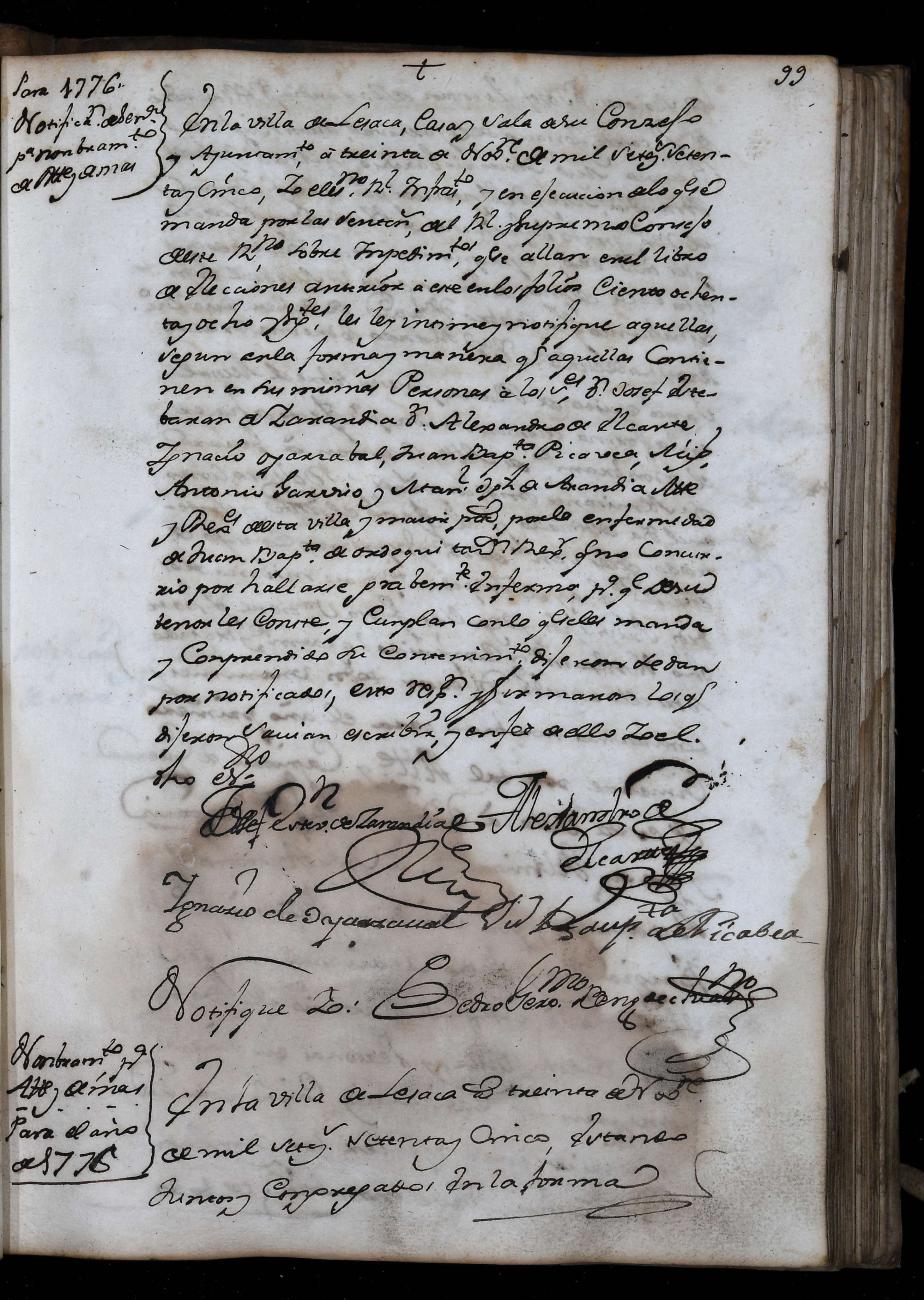 t
99
Para 1776
Notifica.n de
p.a nonbram.to
de Alle y demas
En la villa de Lesaca, Casa y Sala de su Conzejo
y Ayuntam.to, a treinta de Nob.e de mil setez.s seten-
ta y Cinco, Yo el ess.no R.l Infras.to, y en ejecucion de lo q.e se
manda por las Senten.s, del R.l y Supremo Consejo
de este R.no sobre Inpedim.tos, q.e se allan en el libro
de Elecciones anterior a este en los folios Ciento ochen-
ta y ocho y sig.tes, les ley intime y notifique aquellas,
segun en la forma y manera q.e aquellas Contie-
nen en sus mismas Personas a los S.es D.n Josef Este-
baran de Zarandia D.n Alexandro de Ycarte,
Ignacio oyarzabal, Juan Bap.ta Picavea,
Antonio y de Arandia Alle
y Reg.es de esta villa, y maior p.te, por la enfermedad
de Juan Bap.ta de ordoqui tanb.n Reg.r q.e no Concur-
rio por hallarse gravem.te Infermo, p.a q.e de su
tenor les Conste, y Cunplan con lo q.e se les manda
y Conprendido su Contenim.to, dijeron se dan
por notificados, esto resp.n y firmaron los q.e
dijeron Savian escribir, y en fee de ello Yo el
dho es.no
Josef Estev.n de Zarandia Alexandro de
Ycarte
Ignazio de Oyarzaval Ju.n Baup.ta de Picabea
Notifique Yo: Pedro Gero.mo
Nonbram.to p.a
Alle y demas
Para el año
de 1776
En la villa de Lesaca a treinta de Nob.e
de mil setez.s setenta y Cinco, Estando
Juntos y Congregados En la forma